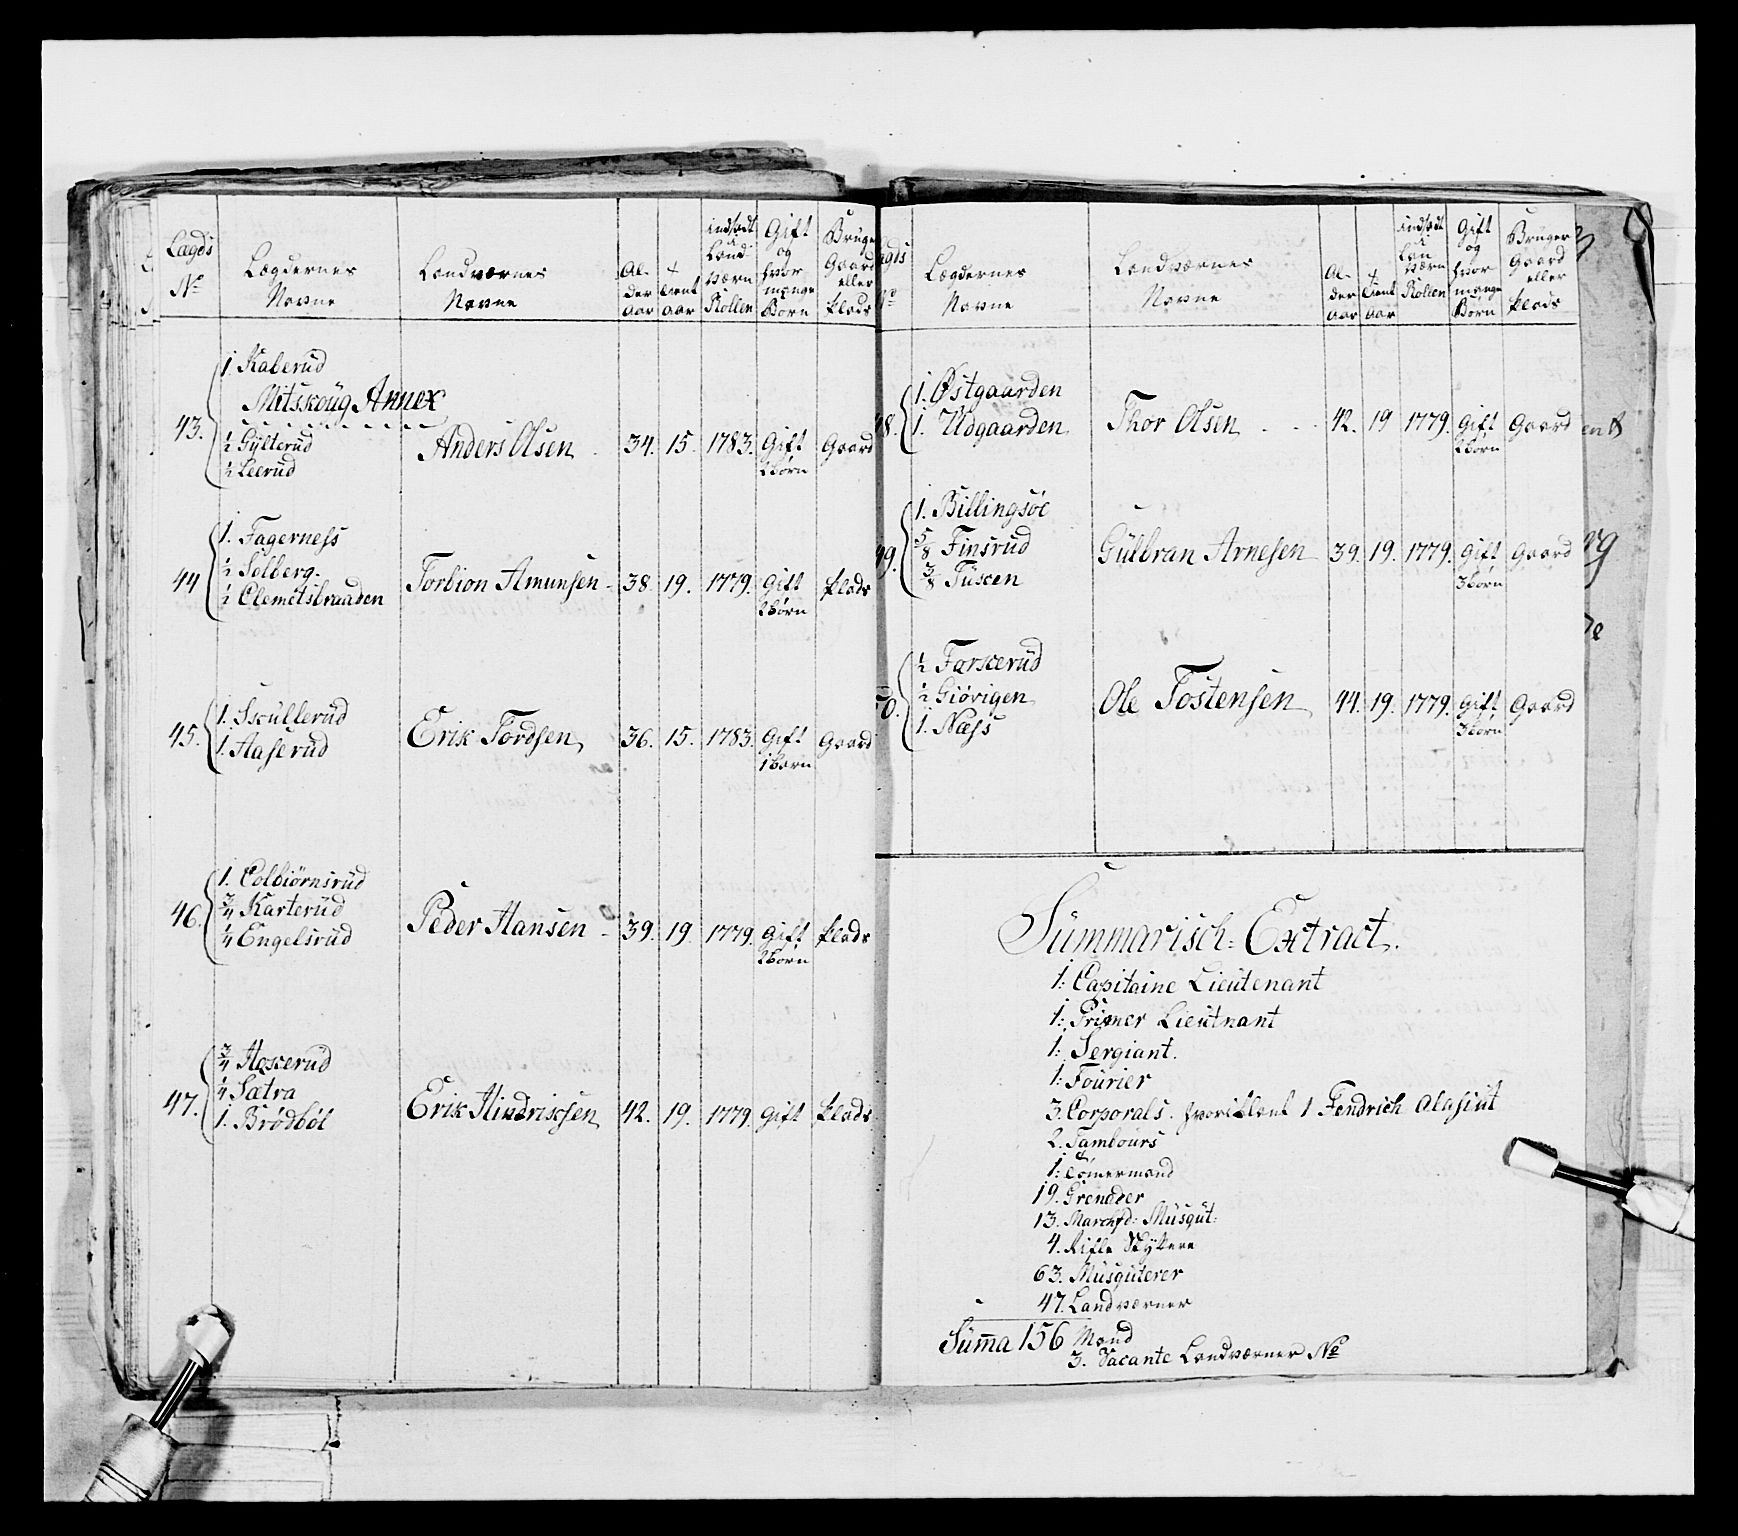 Lægds
No
Lægdernes
Navne
Landværnes
Navne
Al-
der
aar
Tient
aar
indsadt
i
Land
værn
Rollen
Gift
og
hvor
mange
Børn
Bruger
Gaard
eller
Plads
43.
1. Kalerud
Mitskoug Annex
½ Gylterud
½ Leerud
Anders Olsen 34. 15. 1783. Gift Gaard
2 børn
44
1. Fagerness
½ Solberg.
½ Clemetsbraaden
Torbion Amunsen 38. 19. 1779. Gift Plads
2 børn
45.
1. Scullerud
1. Aaserud
Erik Tordsen 36. 15. 1783. Gift Gaard
1 barn
46.
1. Colbiørnsrud
¾ Karterud
¼ Engelsrud
Peder Hansen 39. 19. 1779. Gift Plads
2 børn
47.
¾ Haxerud
¼ Sætra
1. Brødbøl
Erik Hindricsen 42. 19. 1779. Gift Plads
Lægdernes
Navne
Landværnes
Navne
Al-
der
aar
Tient
aar
indsadt
i
Lan
værn
Rollen
Gift
og
hvor
mange
Børn
Bruger
Gaard
eller
Plads
8.
1. Østgaarden
1. Udgaarden
Thor Olsen 42. 19 1779. Gift Gaard
2 børn
9.
1. Billingsøe
5/8 Finsrud
3/8 Tuscen
Gulbran Arnesen 39. 19. 1779. Gift Gaard
3 børn
50.
½ Farscerud
½ Giørigen
1. Næss
Ole Tostensen 44. 19. 1779. Gift Gaard
3 børn
Summarisch: Extract.
1: Capitaine Lieutenant
1: Primer Lieutnant
1: Sergiant.
1: Fourier
3. Corporals. hvoriblant 1 Fendrich Alasint
2. Tambours
1: Tømermand
19. Grenader
13. Marchfd: Musqut:
4. Rifle Skyttere
63. Musquterer
47. Landværner
Summa 156 Mand
3. Vacante Landværner No